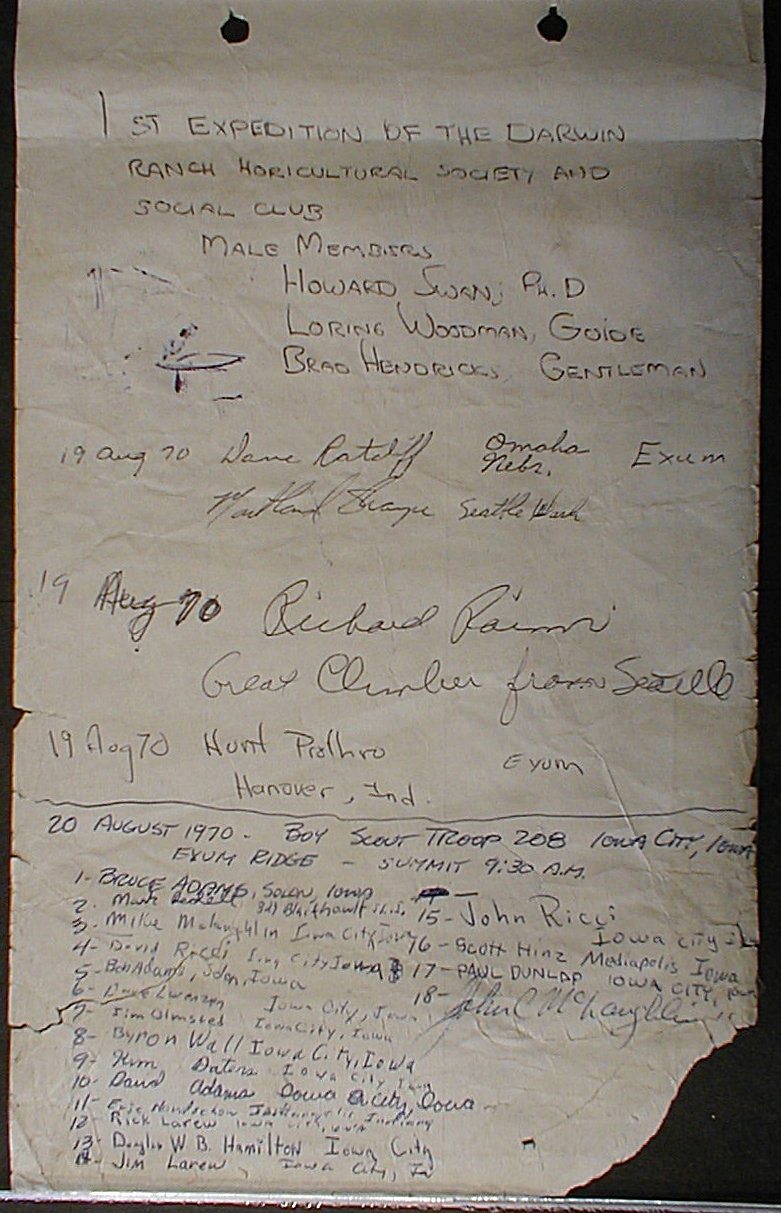 1ST EXPEDITION OF THE DARWIN
RANCH HORICULTURAL SOCIETY AND
SOCIAL CLUB
MALE MEMBERS
HOWARD SWAN, PH.D
LORING WOODMAN, GUIDE
BRAD HENDRICKS, GENTLEMAN
19 Aug 70 Dave Ratcliff Omaha Nebr. Exum
Seattle Wash
19 Aug 70 Richard
Great Climber from Seattle
19 Aug 70 Hunt Prothro Exum
Hanover, Ind.
20 AUGUST 1970 - BOY SCOUT TROOP 208 IOWA CITY, IOWA
EXUM RIDGE - SUMMIT 9:30 A.M.
1- BRUCE ADAMS, SOLON, IOWA
2. Mark
3. Mike McLaughlin Iowa City, Iowa
4- David Ricci Iowa City Iowa
5- Bob Adams, Solon, Iowa
6- Dave Iowa City, Iowa
7- Jim Olmsted Iowa City, Iowa
8- Byron Wall Iowa City, Iowa
9- Kim Iowa City Iowa
10- David Adams Iowa City, Iowa
11- Eric Indiana
12 Rick Larew Iowa City, Iowa
13- Douglas W. B. Hamilton Iowa City
14- Jim Larew, Iowa City, Ia
15- John Ricci Iowa City
16- Scott Hinz Mediapolis Iowa
17- PAUL DUNLAP IOWA CITY, Iowa
18- John C McLaughlin "